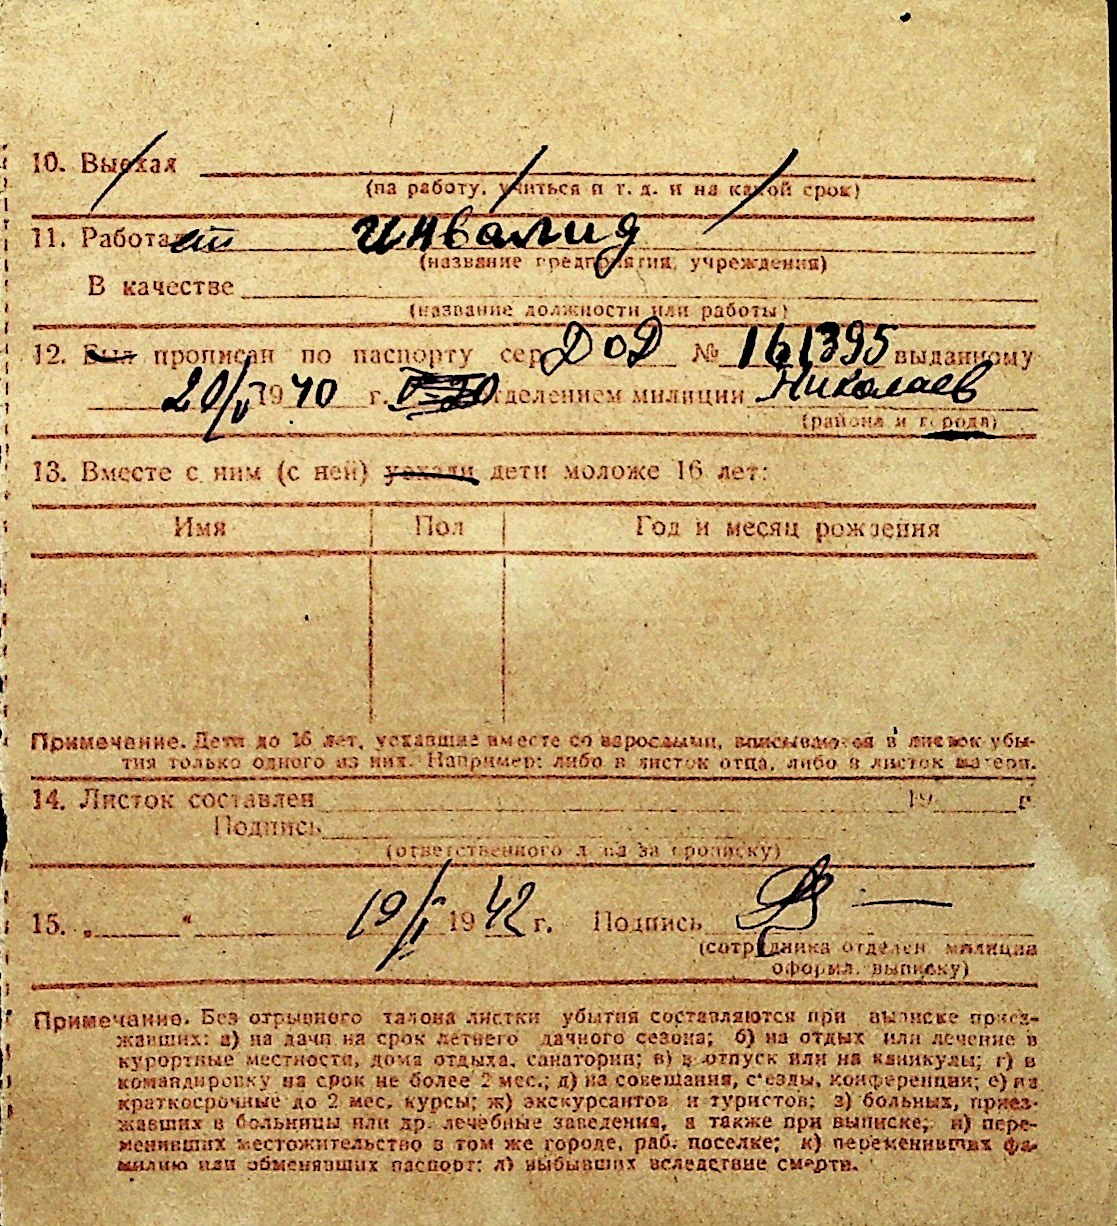 10. Выехал
(на работу, учиться и т. д. и на какой срок)
11. Работает инвалид
(название предприятия, учреждения)
В качестве
(название должности или работы)
12. Был прописан по паспорту сер. ДОД № 161395 выданному
20/V 1940 г. отделением милиции Николаев
(района и города)
13. Вместе с ним (с ней) уехали дети моложе 16 лет:
Имя Пол Год и месяц рождения
Примечание. Дети до 16 лет, уехавшие вместе со взрослыми, вписываются в листок убы-
тия только одного из них. Например: либо в листок отца, либо в листок матери.
14. Листок составлен 19 г.
Подпись
(ответственного лица за прописку)
15. „ “ 19/I 1942 г. Подпись
(сотрудника отделен. милиции
оформл. выписку)
Примечание. Без отрывного талона листки убытия составляются при выписке приез-
жавших: а) на дачи на срок летнего дачного сезона; б) на отдых или лечение в
курортные местности, дома отдыха, санатории; в) в отпуск или на каникулы; г) в
командировку на срок не более 2 мес.; д) на совещания, с'езды, конференции; е) на
краткосрочные до 2 мес. курсы; ж) экскурсантов и туристов; з) больных, приез-
жавших в больницы или др. лечебные заведения, а также при выписке; и) пере-
менивших местожительство в том же городе, раб. поселке; к) переменивших фа-
милию или обменявших паспорт; л) выбывших вследствие смерти.